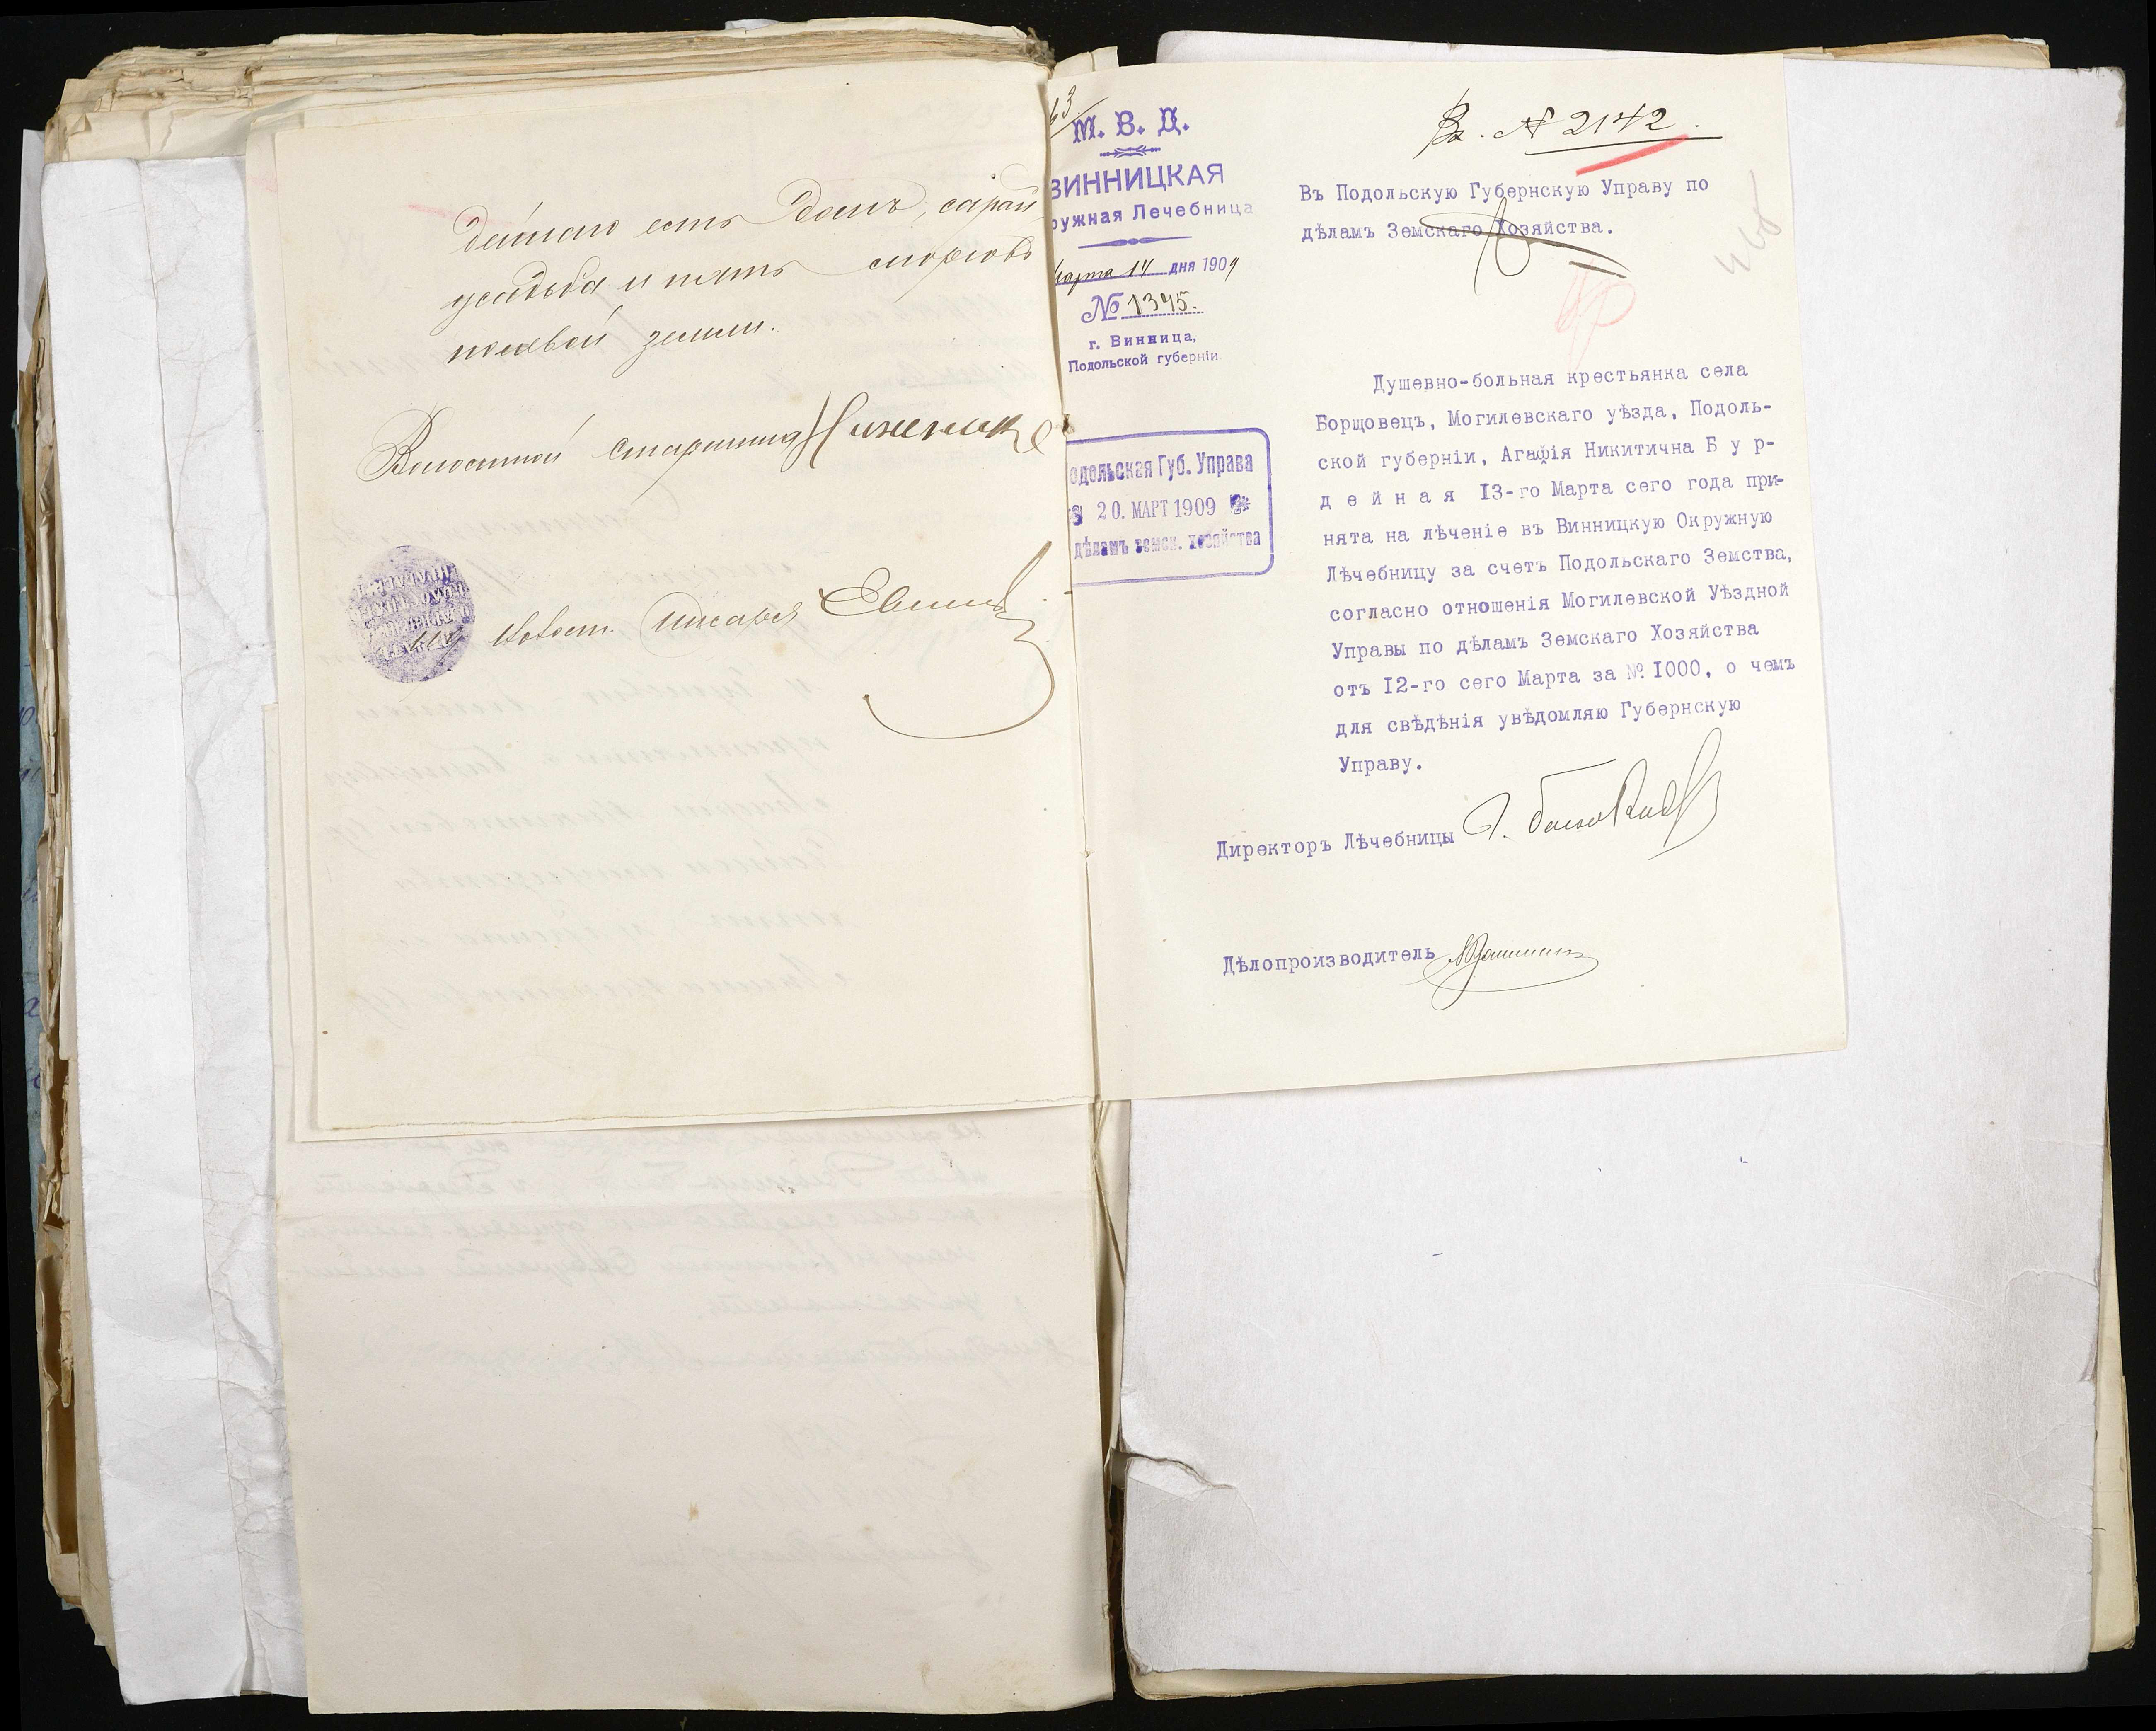 есть домъ, сарай
усадьба и пять морговъ
полевой земли.
Волостной Старшина
Волост. Писарь
М. В. Д.
ВИННИЦКАЯ
ружная Лечебница
Марта 14 дня 1909
№ 1345.
г. Винница,
Подольской губерніи.
одольская Губ. Управа
20. МАРТ 1909
дѣламъ земск. хозяйства
Вх. № 2142.
Въ Подольскую Губернскую Управу по
дѣламъ Земскаго Хозяйства.
Душевно-больная крестьянка села
Борщовецъ, Могилевскаго уѣзда, Подоль-
ской губерніи, Агафія Никитична Б у р-
д е й н а я 13-го Марта сего года при-
нята на лѣченіе въ Винницкую Окружную
Лѣчебницу за счетъ Подольскаго Земства,
согласно отношенія Могилевской Уѣздной
Управы по дѣламъ Земскаго Хозяйства
отъ 12-го сего Марта за № 1000, о чемъ
для свѣдѣнія увѣдомляю Губернскую
Управу.
Директоръ Лѣчебницы
Дѣлопроизводитель